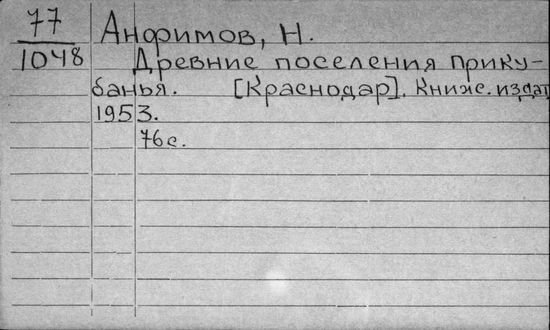 77
1048
Анфимов, Н.
Древние поселения Прику-
банья. [Краснодар]. Книж. издат
1953.
76с.